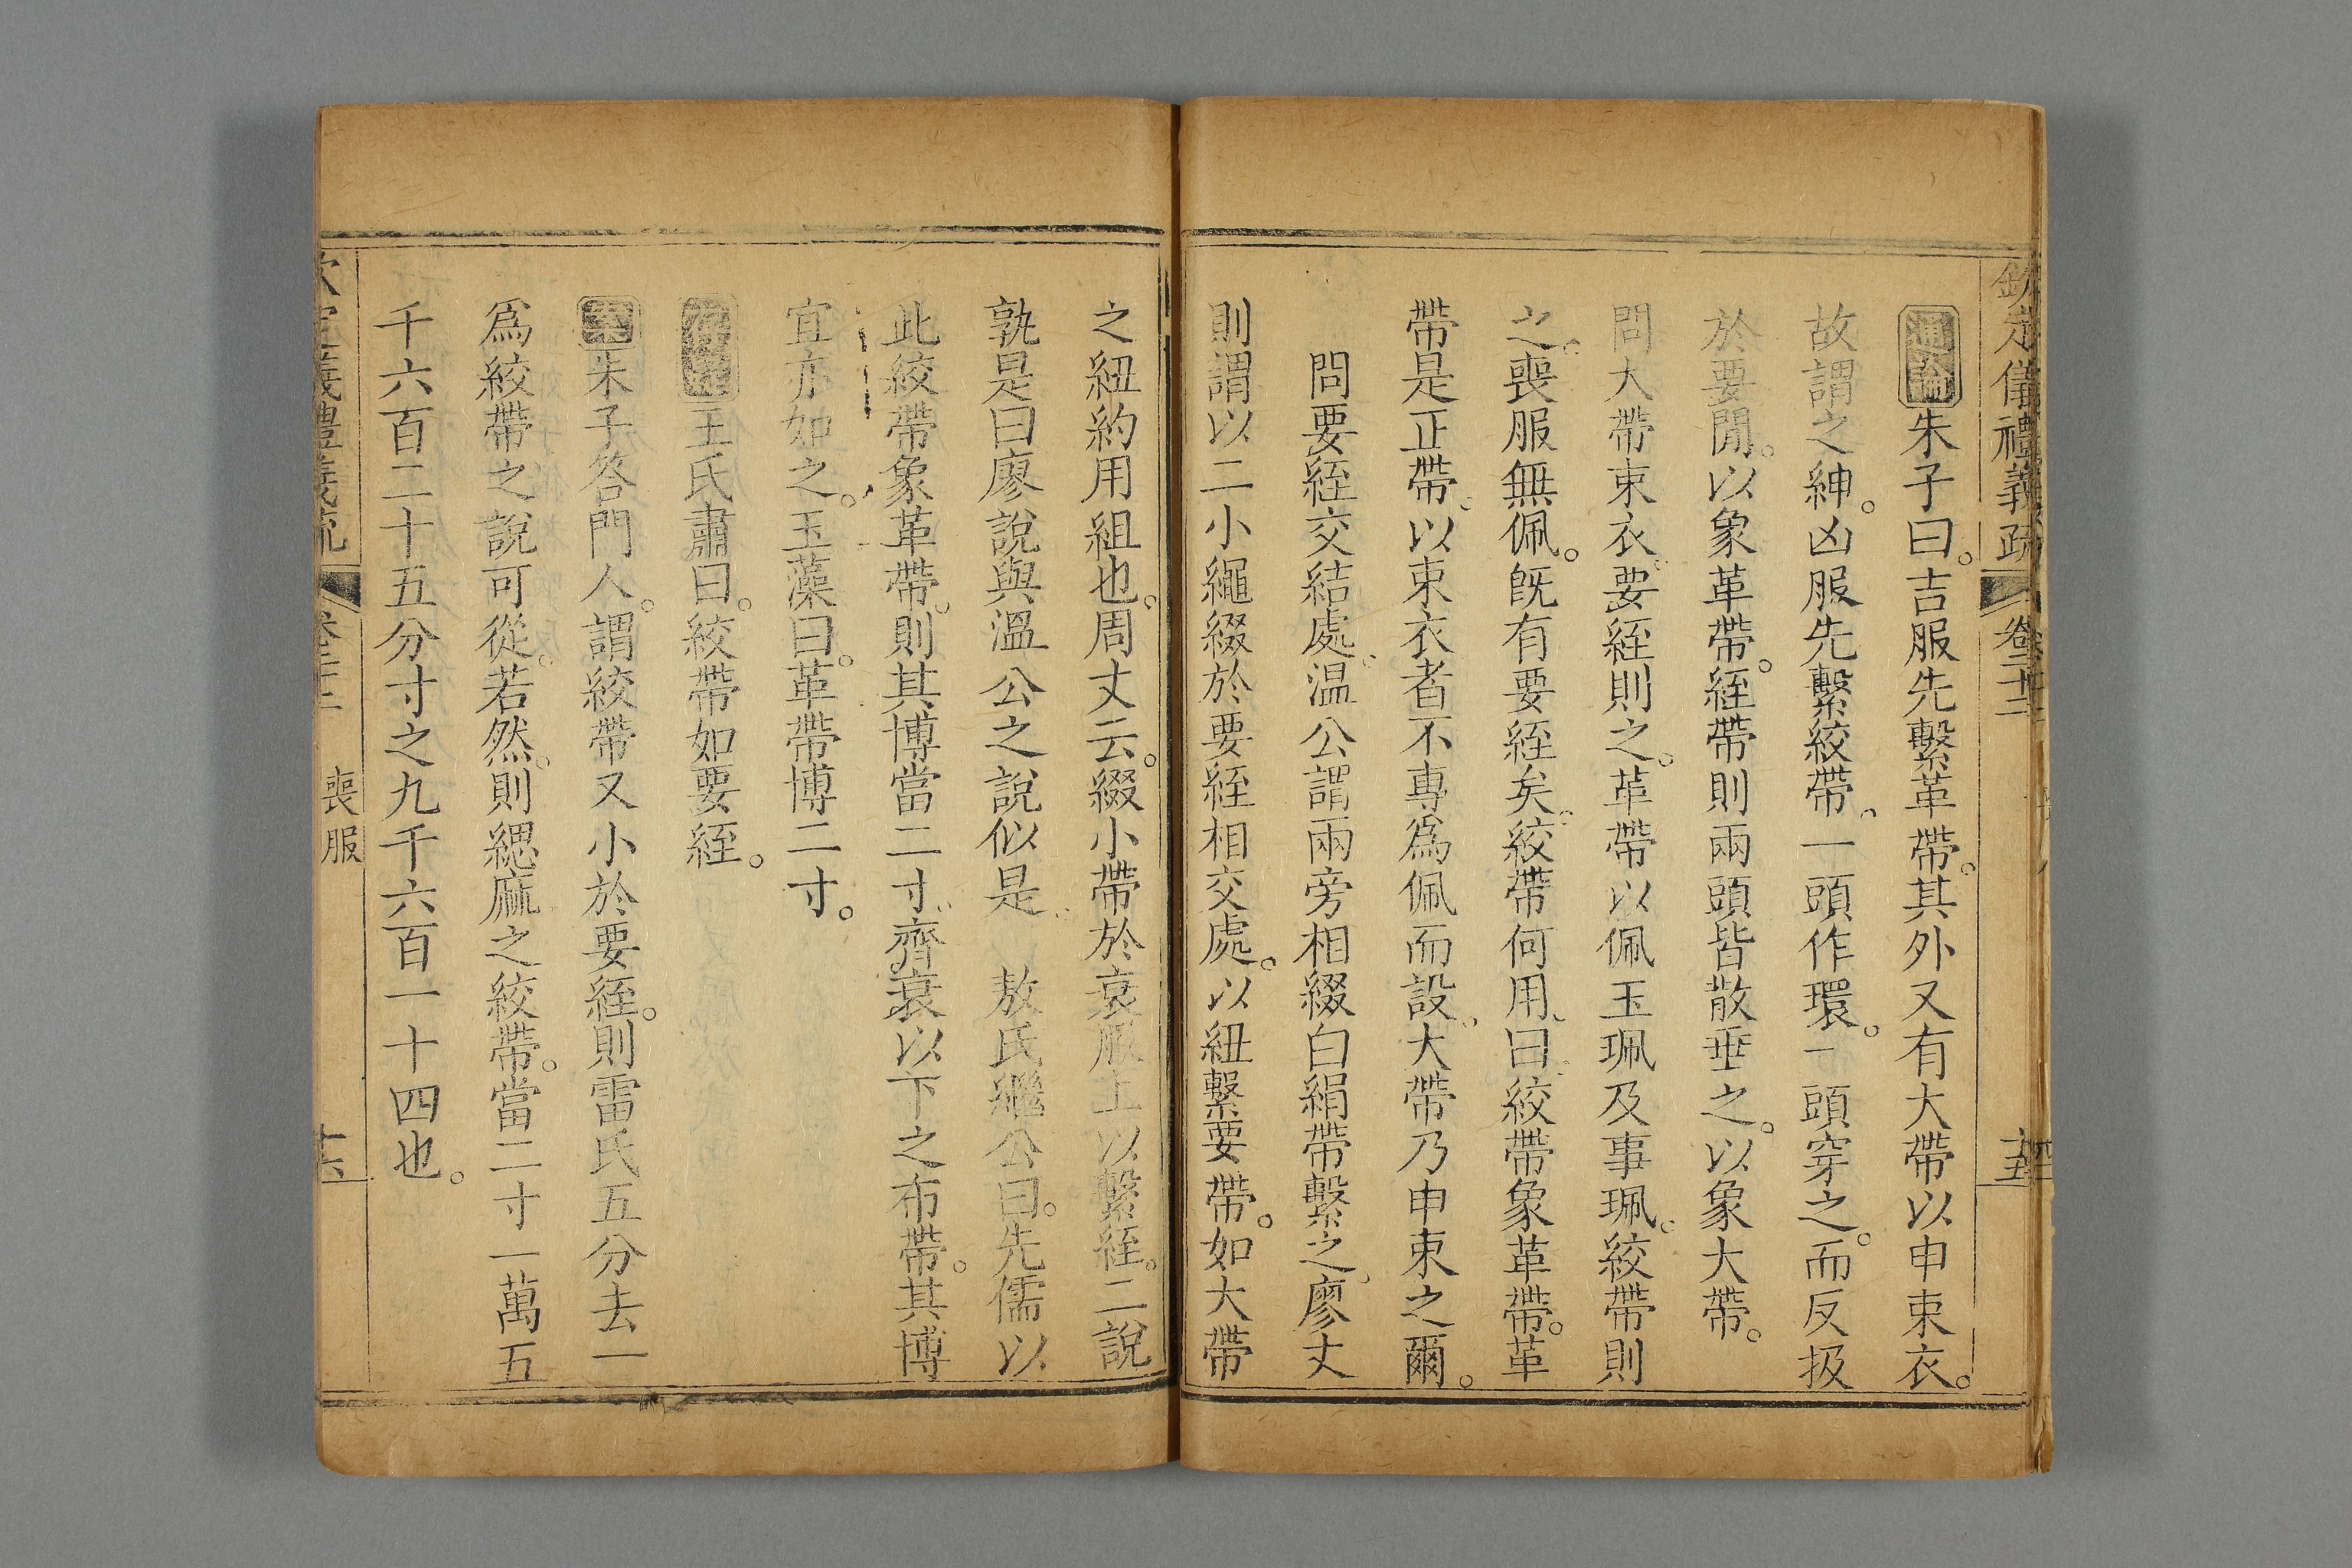 欽定儀禮義疏 卷二十二 十五
通論朱子曰。吉服先繫革帶。其外又有大帶以申束衣。
故謂之紳。凶服先繫絞帶。一頭作環。一頭穿之。而反扱
於要閒。以象革帶。絰帶則兩頭皆散垂之。以象大帶。
問大帶束衣。要絰則之。革帶以佩玉珮及事珮。絞帶則
之。喪服無佩。旣有要絰矣。絞帶何用。曰。絞帶象革帶。革
帶是正帶。以束衣者不專爲佩而設。大帶乃申束之爾。
問要絰交結處。温公謂兩旁相綴白絹帶繫之。廖丈
則謂以二小繩綴於要絰相交處。以紐繫要帶。如大帶
之紐約用組也。周丈云。綴小帶於衰服上以繫絰。二說
孰是曰廖說與溫公之說似是。 敖氏繼公曰。先儒以
此絞帶象革帶。則其博當二寸。齊衰以下之布帶。其博
宜亦如之。玉藻曰。革帶博二寸。
存異王氏肅曰。絞帶如要絰。
案朱子答門人。謂絞帶又小於要絰。則雷氏五分去一
爲絞帶之說可從。若然。則緦麻之絞帶。當二寸一萬五
千六百二十五分寸之九千六百一十四也。
欽定儀禮義疏 卷二十二 喪服 十六